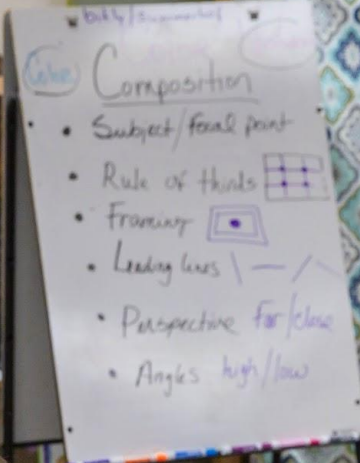 Color
Composition
• Subject/focal point
• Rule of thirds
• Framing
• Leading lines
• Perspective far/close
• Angles high/low